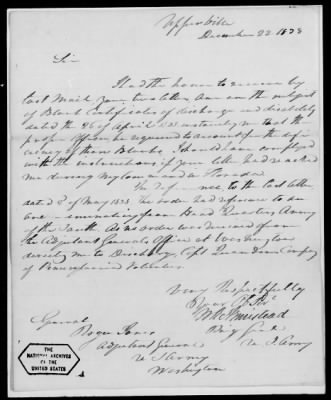 Upperville
December 22 1838
Sir
I had the honor to receive by
last mail your two letters, one on the subject
of Blank Certificates of discharge and disability
dated the 26 of April instructing me that the
proper Officer be required to account for the defi
ciency of these Blanks. I should have complied
with the instructions if your letter had reached
me during my command in Florida.
In reference to the last letter
dated 2d of May 1838, the order had reference to an
one emanating from Head Quarters Army
of the South. As no order was received from
the Adjutant Generals Office at Washington
directing me to Discharge Capt Company
of Volunteers.
Very Respectfully
Your Ob Ser
W K Armistead
Brig Genl
U S Army
General
Roger Jones
Adjutant General
U S Army
Washington
THE
NATIONAL ARCHIVES
OF THE
UNITED STATES